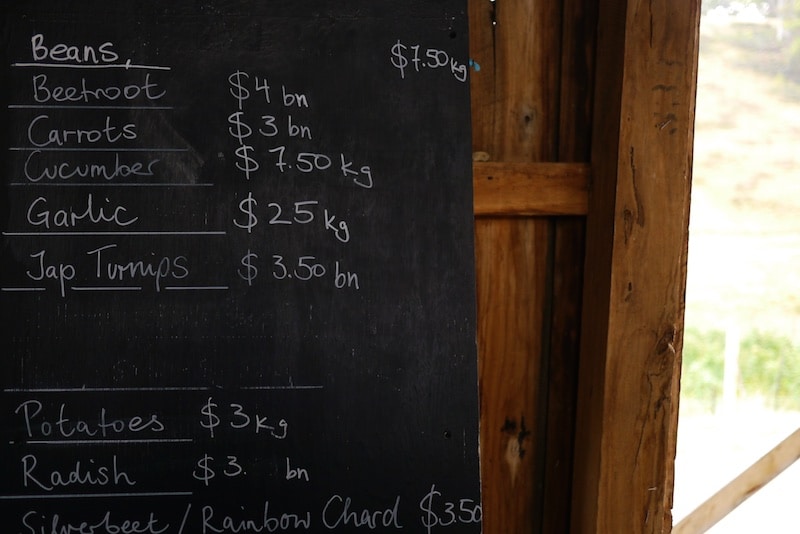 Beans, $7.50kg
Beetroot $4 bn
Carrots $3 bn
Cucumber $7.50 kg
Garlic $25 kg
Jap Turnips $3.50 bn
Potatoes $3 kg
Radish $3. bn
Silverbeet / Rainbow Chard $3.50